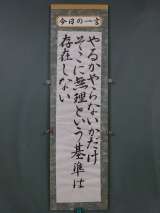 今日の一言
やるかやらないかだけ
そこに無理という基準は
存在しない